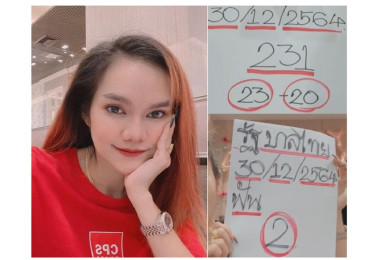 CPS
30/12/2564
231
23-20
รัฐบาลไทย
30/12/2564
ฟัน
2